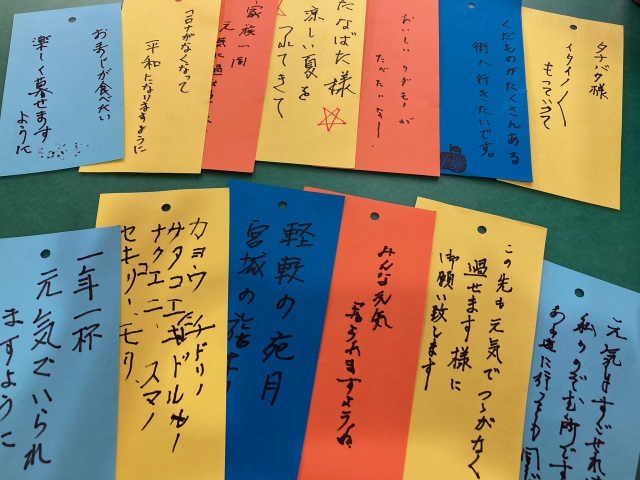 タナバタ様
イタイノ〱
もっていって
くだものがたくさんある
街へ行きたいです。
おいしいクダモノが
たべたいなー
たなばた様
涼しい夏を
つれてきて
家族一同
元気に過せ
コロナがなくなって
平和になりますように
お寿しが食べたい
楽しく暮せます
ように
私ののぞむ所です
ある道に行っても
この先も元気でつゝがなく
過せます様に
御願い致します
みんな元気
ますようね
月
宮城の
カヨウチドリノ
ナクコエニ
スマノ
セキリ モリ
一年一杯
元気でいられ
ますように